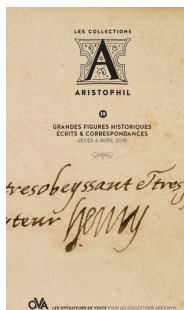 LES COLLECTIONS
A
ARISTOPHIL
19
GRANDES FIGURES HISTORIQUES
ÉCRITS & CORRESPONDANCES
JEUDI 4 AVRIL 2019
tresobeyssant et tres
teur henry
OVA LES OPÉRATEURS DE VENTE POUR LES COLLECTIONS ARISTOPHIL